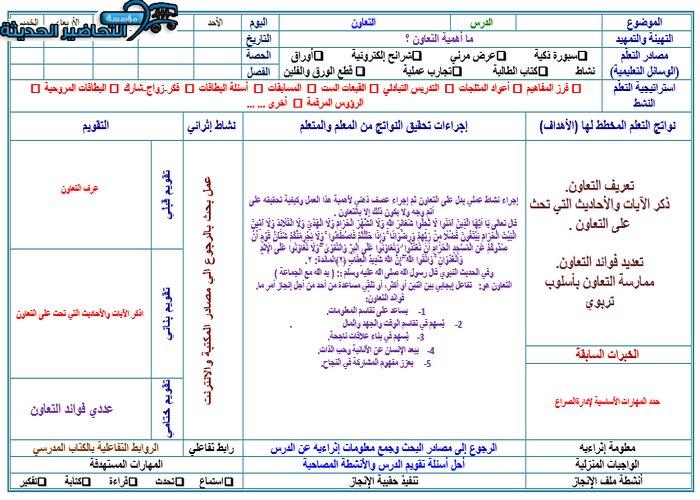 مؤسسة
التحاضير الحديثة
الموضوع الدرس التعاون اليوم الأحد
التهيئة والتمهيد ما أهمية التعاون ؟ التاريخ
مصادر التعلم سبورة ذكية عرض مرئي شرائح إلكترونية أوراق الحصة
(الوسائل التعليمية) نشاط كتاب الطالبة تجارب عملية قطع الورق والفلين الفصل
استراتيجية التعلم فرز المفاهيم أعواد المثلجات التدريس التبادلي القبعات الست المسابقات أسئلة البطاقات فكر-زواج-شارك البطاقات المروحية
النشط الرؤوس المرقمة أخرى ... ...
نواتج التعلم المخطط لها (الأهداف) إجراءات تحقيق النواتج من المعلم والمتعلم نشاط إثرائي التقويم
تعريف التعاون.
ذكر الآيات والأحاديث التي تحث
على التعاون .
تعديد فوائد التعاون.
ممارسة التعاون بأسلوب
تربوي
الخبرات السابقة
حدد المهارات الأساسية لإدارة الصراع
إجراء نشاط عملي يدل على التعاون ثم إجراء عصف ذهني لأهمية هذا العمل وكيفية تحقيقه على
أتم وجه ولا يكون ذلك إلا بالتعاون .
قال تعالى يَا أَيُّهَا الَّذِينَ آمَنُوا لَا تُحِلُّوا شَعَائِرَ اللَّهِ وَلَا الشَّهْرَ الْحَرَامَ وَلَا الْهَدْيَ وَلَا الْقَلَائِدَ وَلَا آمِّينَ
الْبَيْتَ الْحَرَامَ يَبْتَغُونَ فَضْلًا مِنْ رَبِّهِمْ وَرِضْوَانًا ۚ وَإِذَا حَلَلْتُمْ فَاصْطَادُوا ۚ وَلَا يَجْرِمَنَّكُمْ شَنَآنُ قَوْمٍ أَنْ
صَدُّوكُمْ عَنِ الْمَسْجِدِ الْحَرَامِ أَنْ تَعْتَدُوا ۘ وَتَعَاوَنُوا عَلَى الْبِرِّ وَالتَّقْوَىٰ ۖ وَلَا تَعَاوَنُوا عَلَى الْإِثْمِ
وَالْعُدْوَانِ ۚ وَاتَّقُوا اللَّهَ ۖ إِنَّ اللَّهَ شَدِيدُ الْعِقَابِ (٢)المائدة: ٢.
وفي الحديث النبوي قال رسول الله صلى الله عليه وسلم :: ( يد الله مع الجماعة )
التعاون هو: تفاعل إيجابي بين اثنين أو أكثر، أو تلقي مساعدة من أحد من أجل إنجاز أمر ما.
فوائد التعاون:
1- يساعد على تقاسم المعلومات.
2- يُسهم في تقاسم الوقت والجهد والمال .
3- يُسهم في بناء علاقات ناجحة.
4- يبعد الإنسان عن الأنانية وحب الذات.
5- يعزز مفهوم المشاركة في النجاح.
عمل بحث بالرجوع الي مصادر المكتبة والانترنت
تقويم قبلي
عرف التعاون
تقويم بنائي
اذكر الآيات والأحاديث التي تحث على التعاون
تقويم ختامي
عددي فوائد التعاون
معلومة إثرائيه الرجوع إلى مصادر البحث وجمع معلومات إثرائيه عن الدرس رابط تفاعلي الروابط التفاعلية بالكتاب المدرسي
الواجبات المنزلية أحل أسئلة تقويم الدرس والأنشطة المصاحبة المهارات المستهدفة
أنشطة ملف الإنجاز تنفيذ حقيبة الإنجاز استماع تحدث قراءة كتابة تفكير